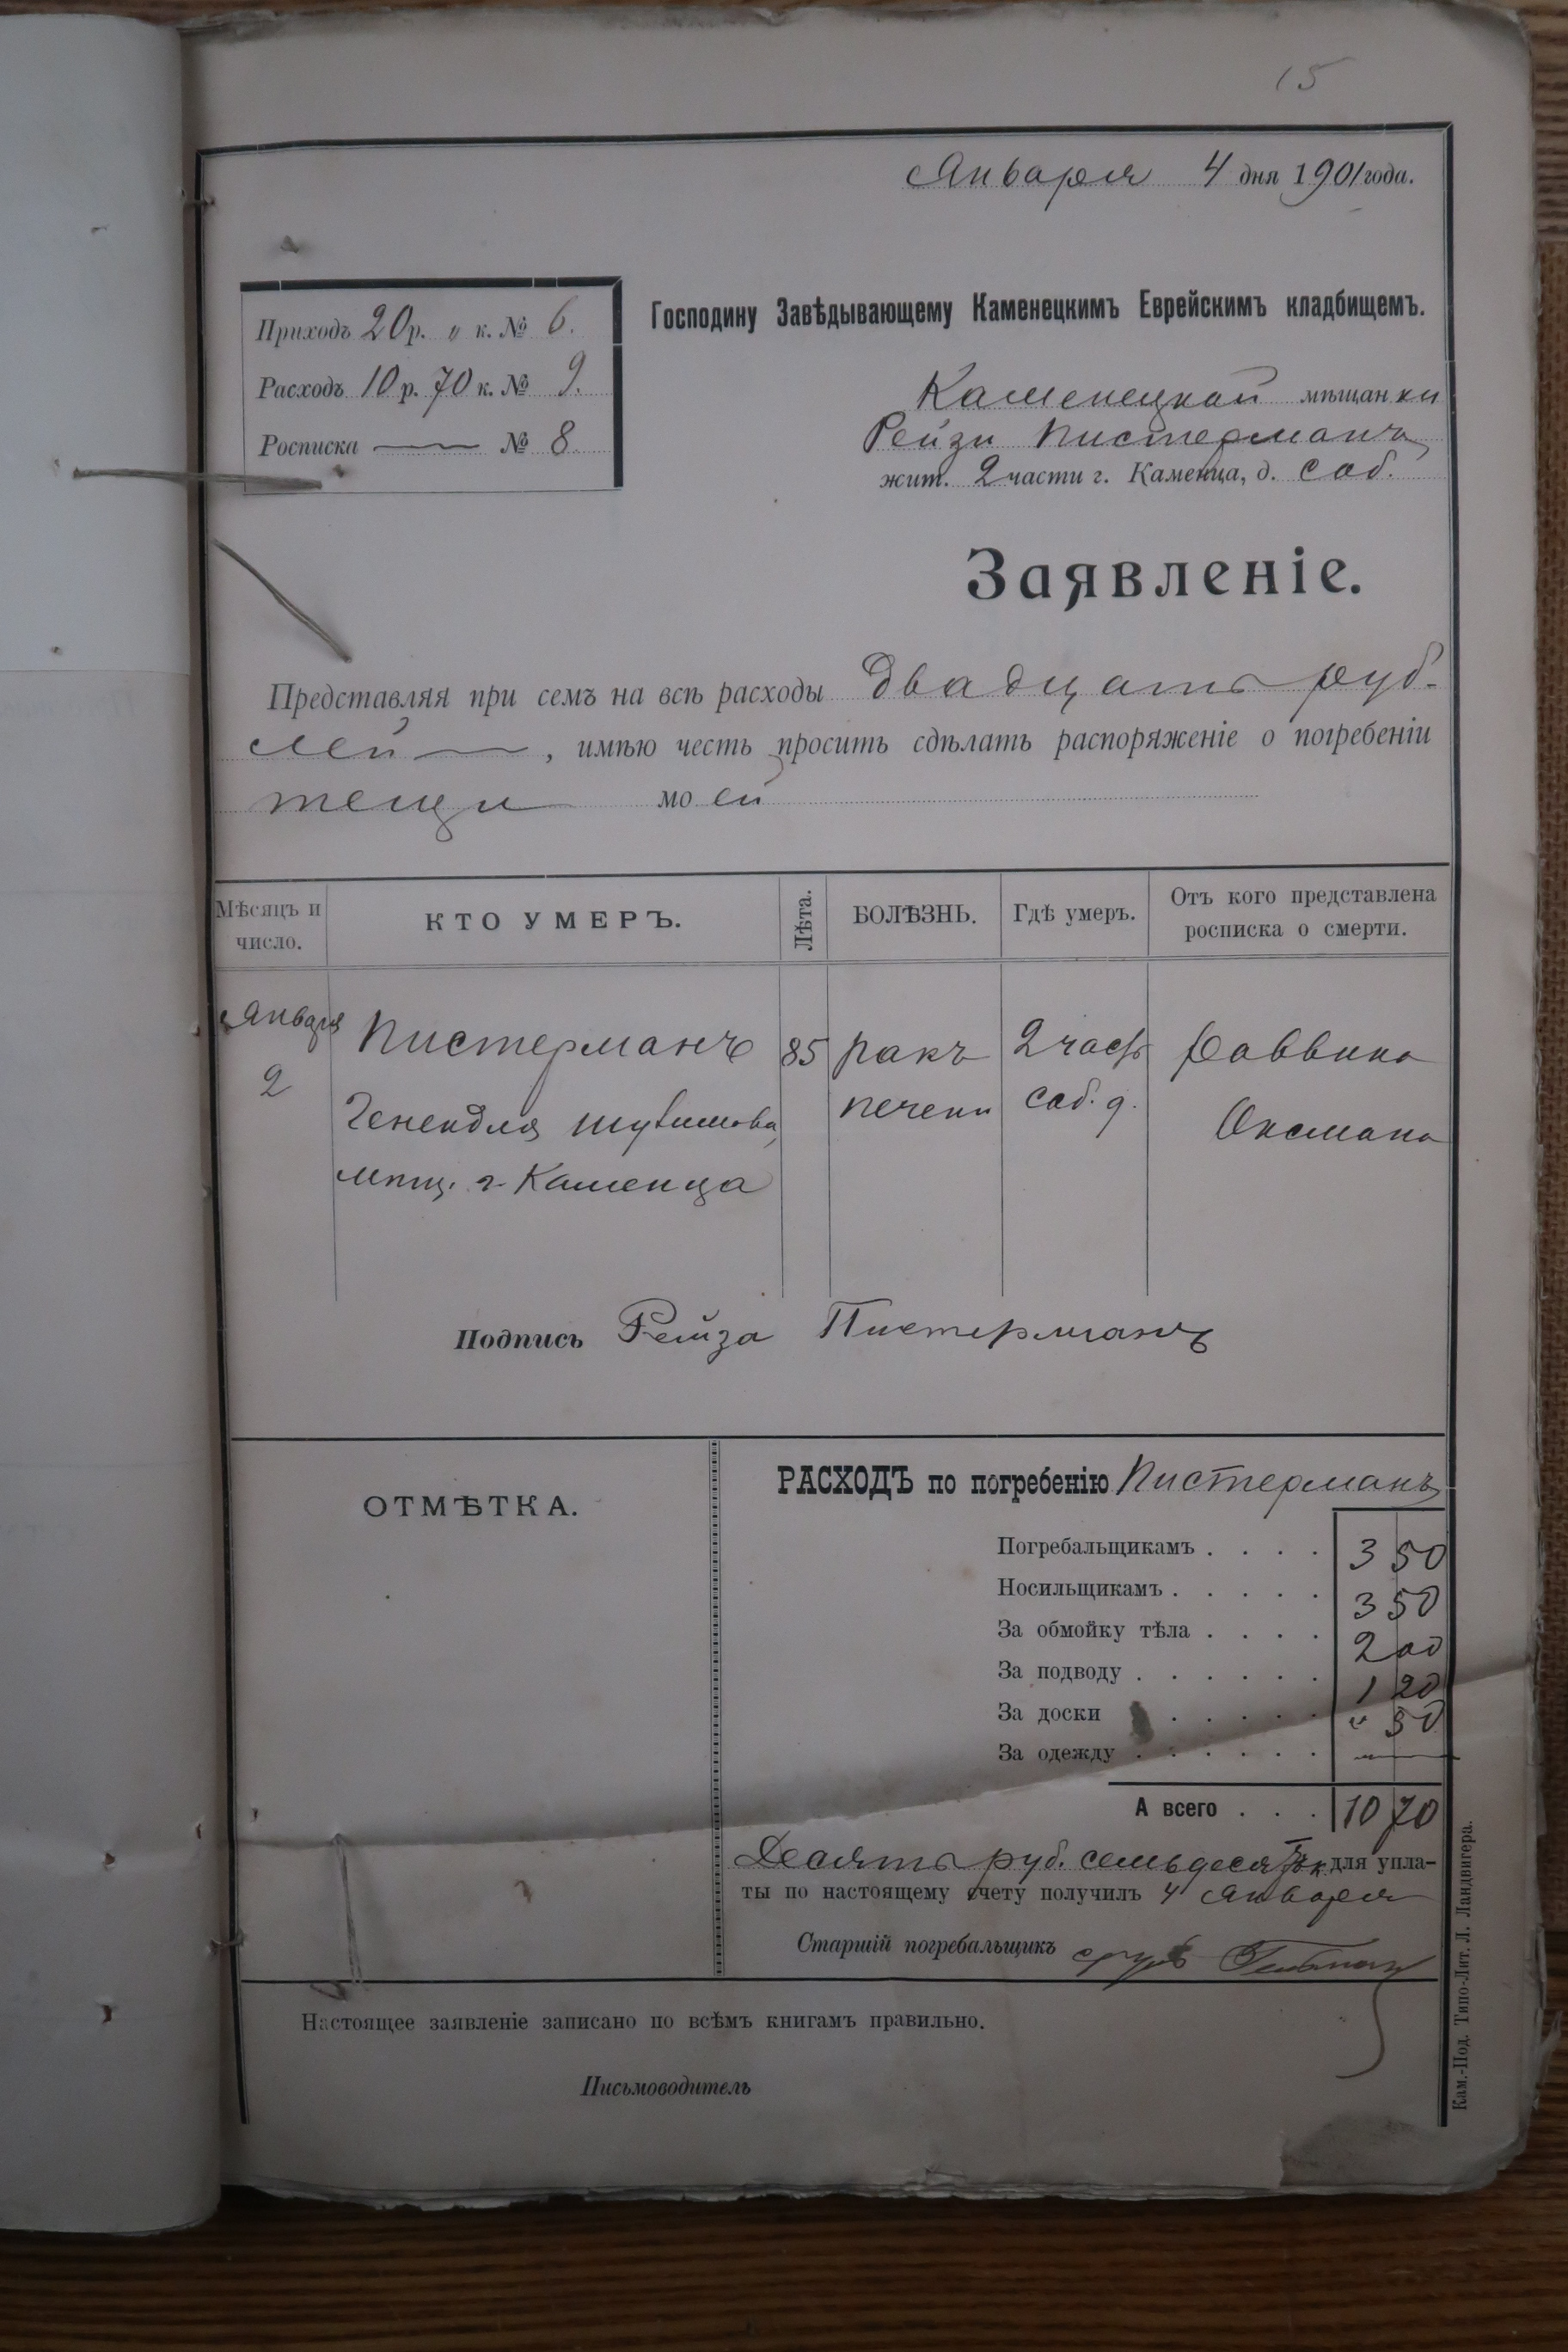 15
Января 4 дня 1901 года.
Приходъ 20 р. „ к. № 6.
Расходъ 10 р. 70 к. № 9.
Росписка — № 8.
Господину Завѣдывающему Каменецкимъ Еврейскимъ кладбищемъ.
Каменецкой мѣщанки
Рейзи Пистерманъ
жит. 2 части г. Каменца, д. соб.
Заявленіе.
Представляя при семъ на всѣ расходы Двадцать руб-
лей —, имѣю честь просить сдѣлать распоряженіе о погребеніи
тещи моей
Мѣсяцъ и число. КТО УМЕРЪ. Лѣта. БОЛѢЗНЬ. Гдѣ умеръ. Отъ кого представлена росписка о смерти.
Января Пистерманъ 85 ракъ 2 часть Раввина
2 Генендля мѣщ. г. Каменца печени соб. д. Оксмана
Подпись Рейза Пистерманъ
ОТМѢТКА.
РАСХОДЪ по погребенію Пистерманъ
Погребальщикамъ . . . . 3 50
Носильщикамъ . . . . . 3 50
За обмойку тѣла . . . . 2 00
За подводу . . . . . . 1 20
За доски . . . . . „ 50
За одежду . . . . . . —
А всего . . . 10 70
Десять руб. семьдесятъ к. для упла-
ты по настоящему счету получилъ 4 Января
Старшій погребальщикъ
Настоящее заявленіе записано по всѣмъ книгамъ правильно.
Письмоводитель
Кам.-Под. Типо-Лит. Л. Ландвигера.